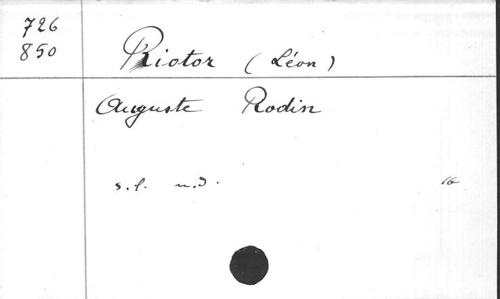 726
850
Riotor (Léon)
Auguste Rodin
s.l. n.d. 16